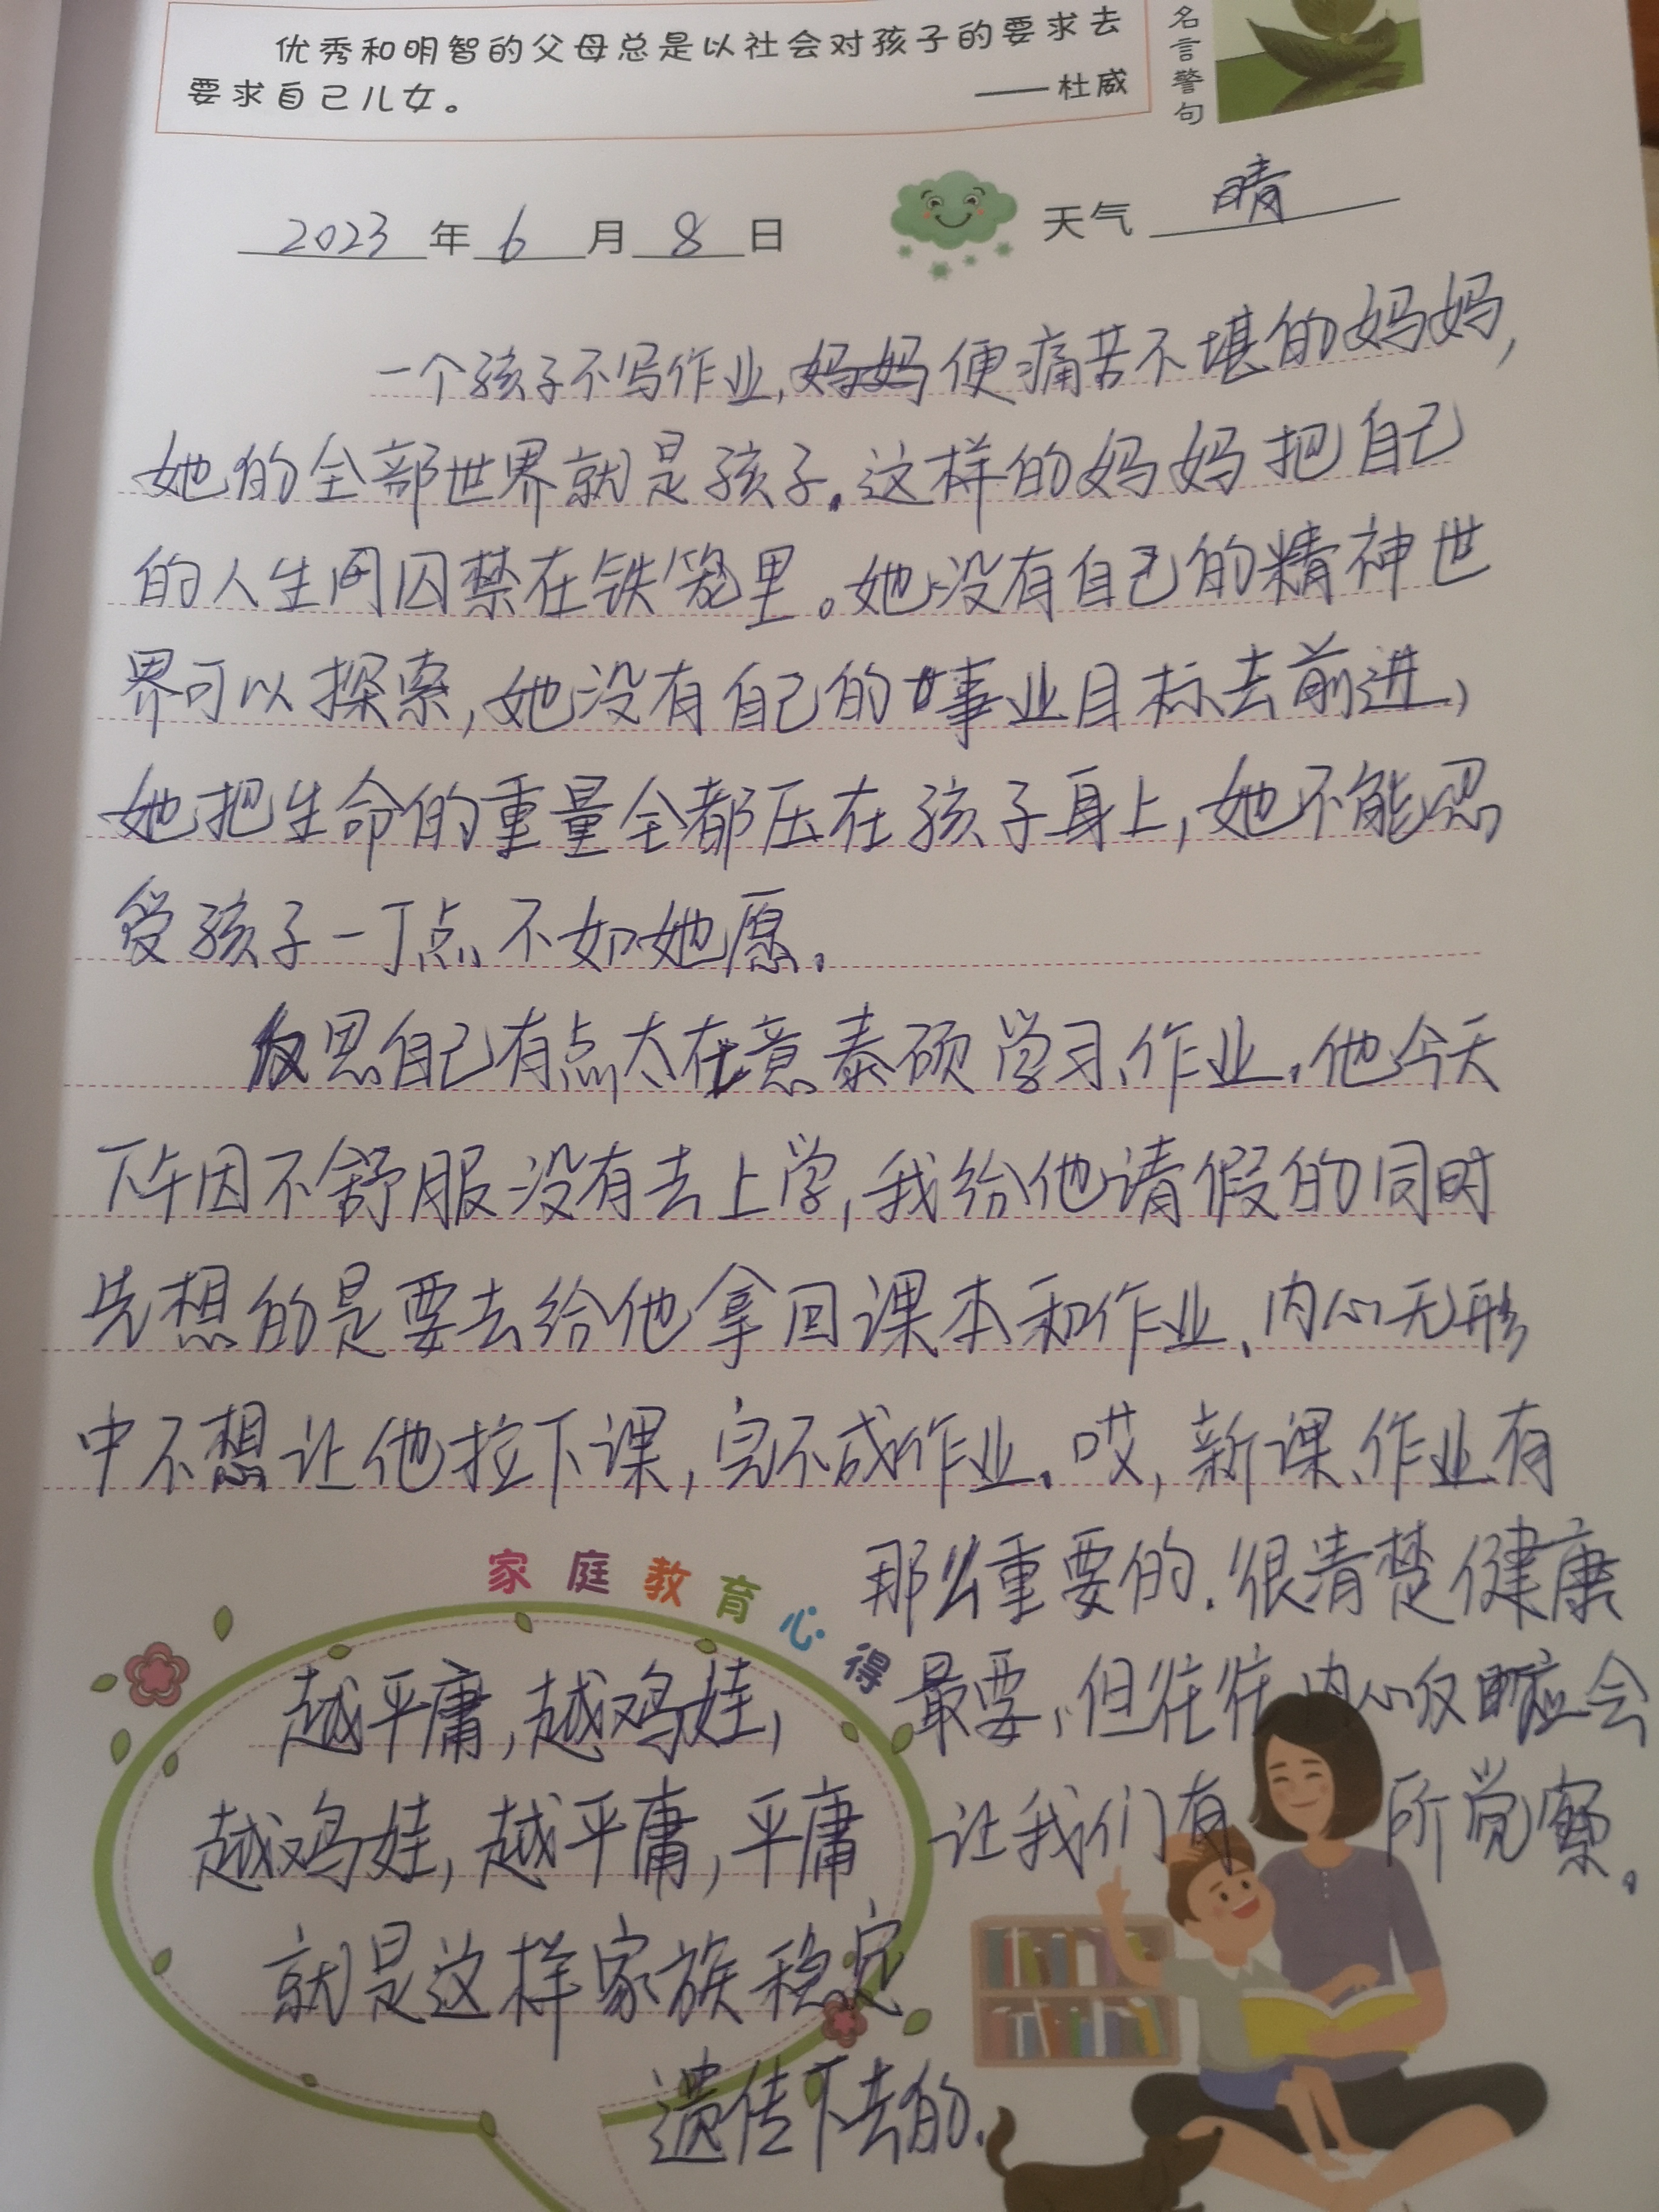 优秀和明智的父母总是以社会对孩子的要求去
要求自己儿女。
——杜威
名言警句
2023年6月8日
天气 晴
一个孩子不写作业,妈妈便痛苦不堪的妈妈,
她的全部世界就是孩子。这样的妈妈把自己
的人生囚禁在铁笼里。她没有自己的精神世
界可以探索,她没有自己的事业目标去前进,
她把生命的重量全都压在孩子身上,她不能忍
受孩子一丁点不如她愿。
反思自己有点太在意泰硕学习、作业。他今天
下午因不舒服没有去上学,我给他请假的同时
先想的是要去给他拿回课本和作业、内心无形
中不想让他拉下课,完不成作业、哎,新课、作业有
那么重要的.很清楚健康
最要、但往往内心反应会
让我们有所觉察。
家庭教育心得
越平庸,越鸡娃,
越鸡娃,越平庸,平庸
就是这样家族稳定
遗传下去的.